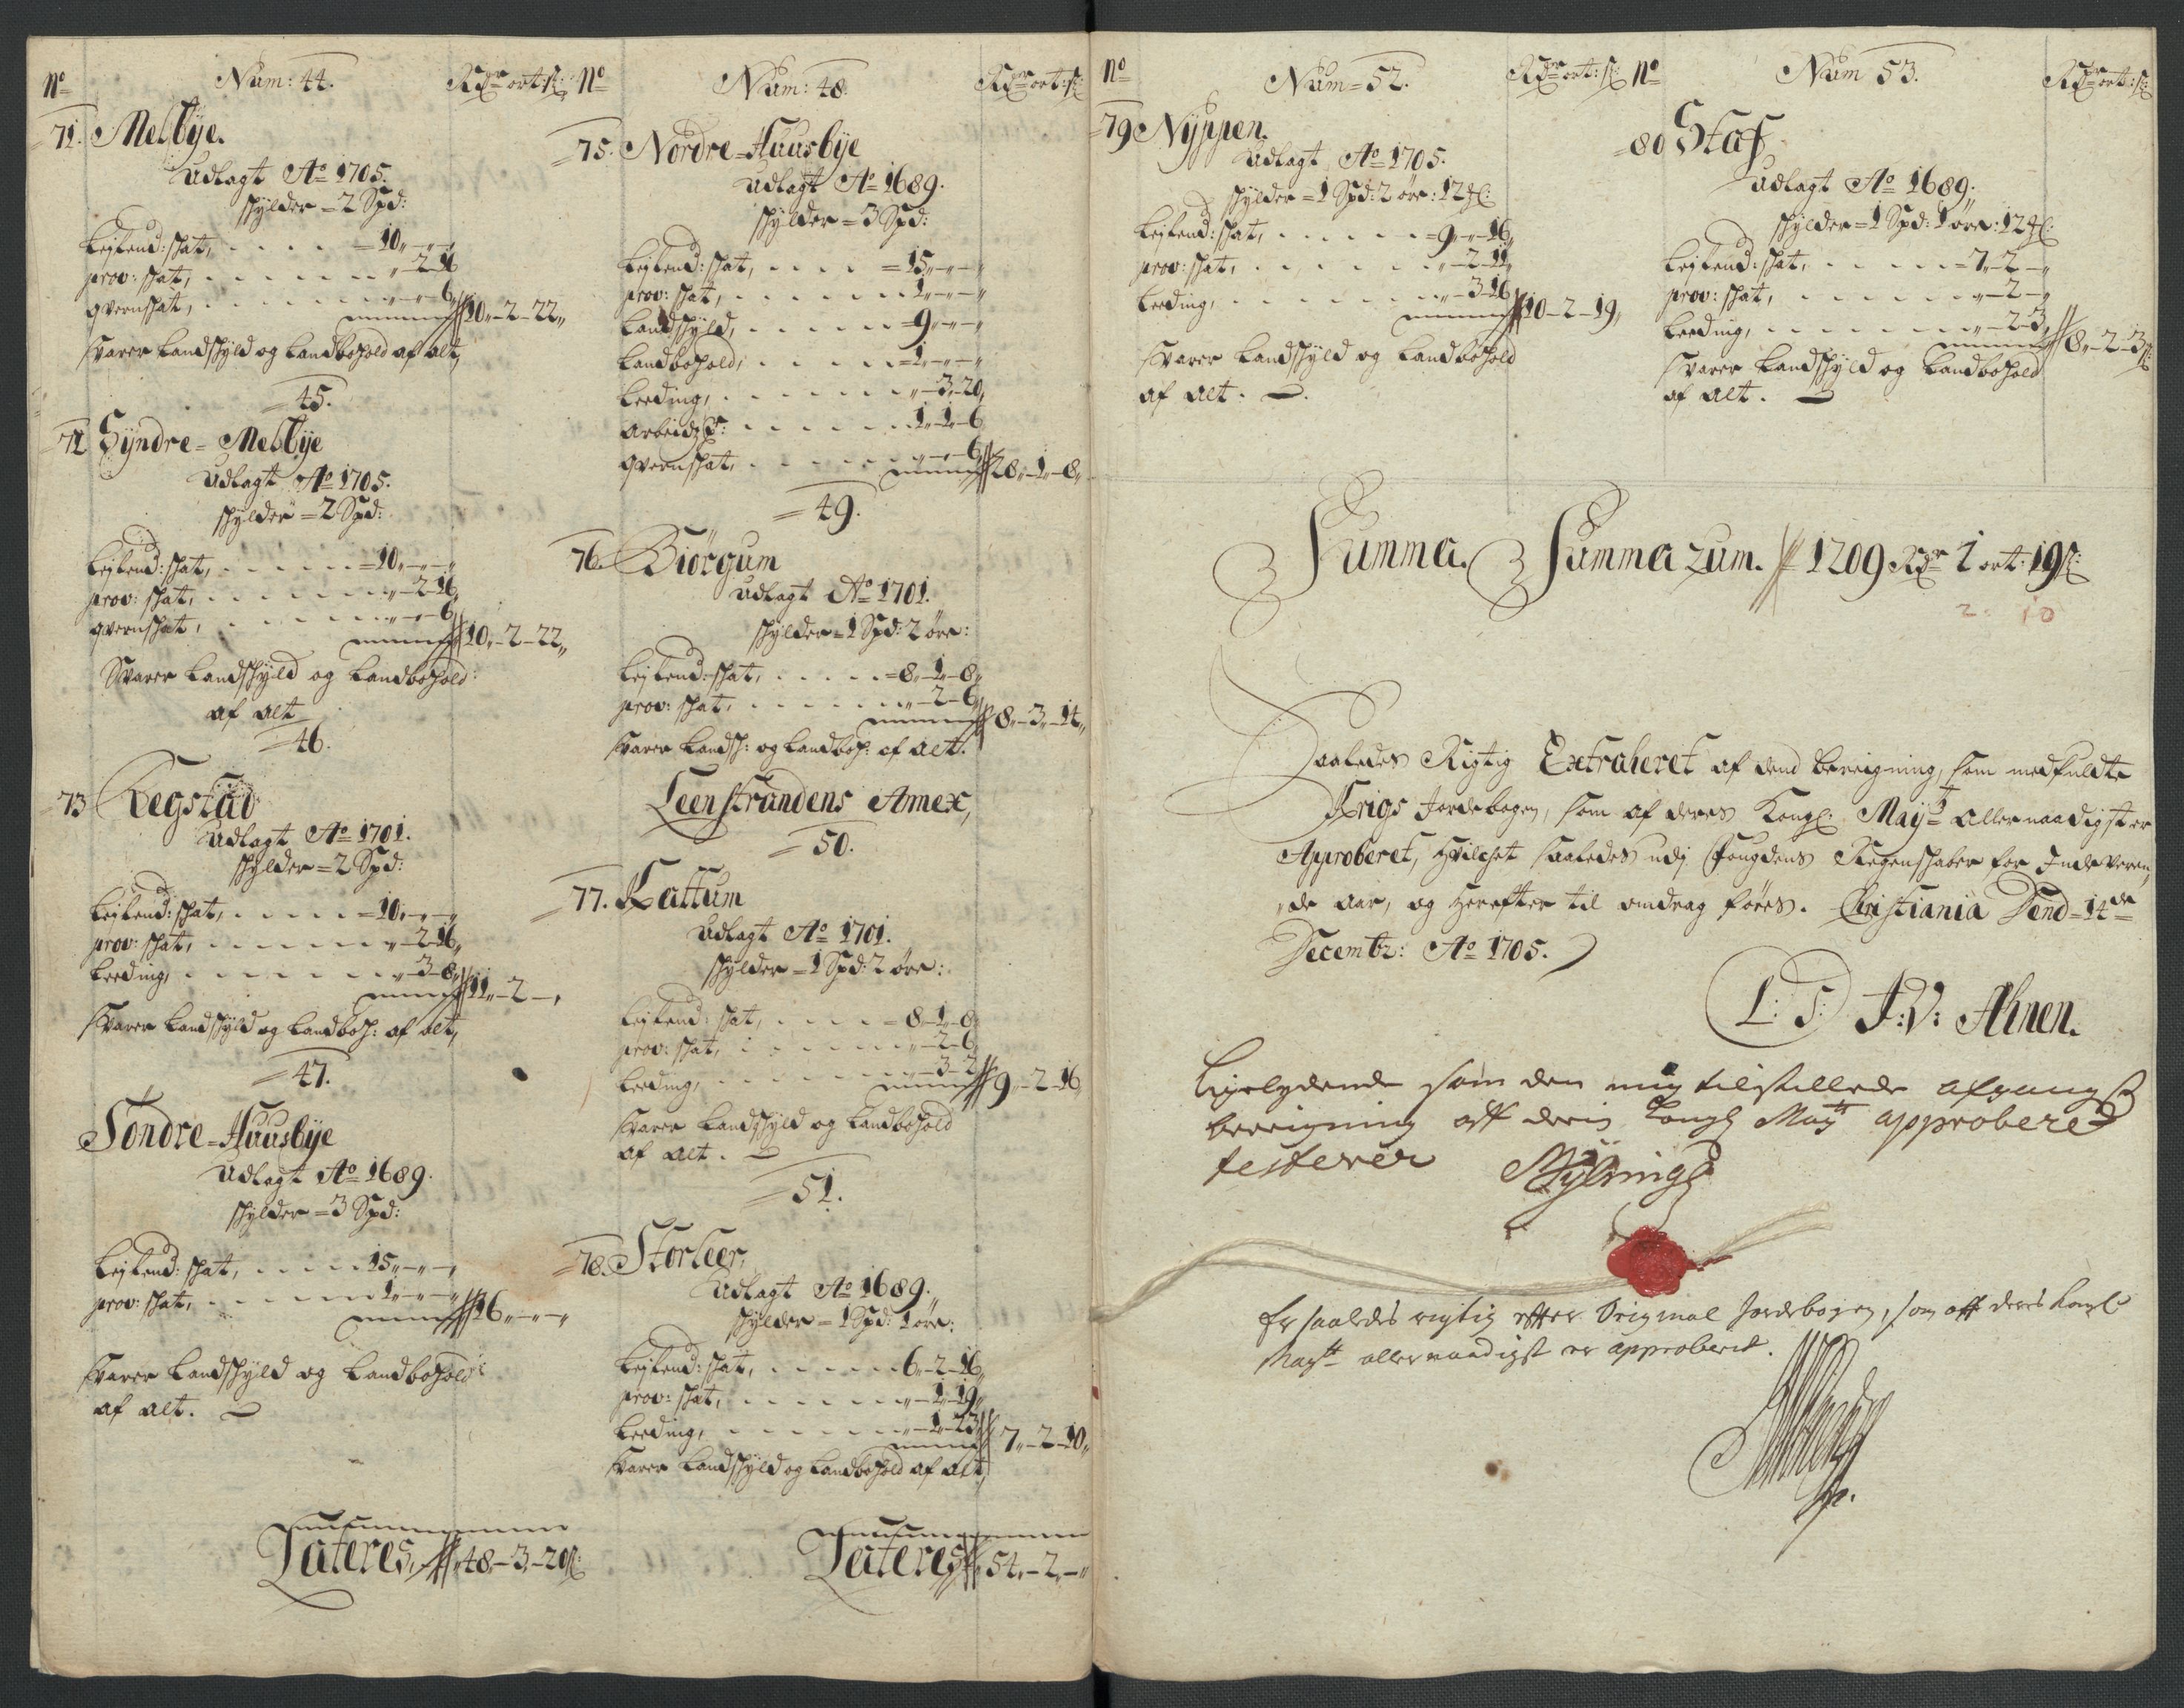 No Num: 44. Rdr ort: s:
71. Melbÿe.
Udlagt Ao 1705.
skÿlder = 2 Spd:
Leÿlend: skat, = 10„ - „ - „
prov: skat, „ - 2 - 16
qvernskat, „ - „ - 6„ 10„ - 2 - 22„
Svarer Landskÿld og Landbohold af alt,
45.
72 Sÿndre = Melbÿe
Udlagt Ao 1705.
skÿlder = 2 Spd:
Leÿlend: skat, = 10„ - „ - „
prov: skat, „ - 2 - 16„
qvernskat, „ - „ - 6„ 10„ - 2 - 22„
Svarer Landskÿld og Landbohold
af alt
46.
73 Regstad
Udlagt Ao 1701.
skÿlder = 2 Spd:
Leÿlend: skat, = 10„ - „ - „
prov: skat, „ - 2 - 16„
Leeding, „ - 3 - 8„ 11„ - 2 - „
Svarer Landskÿld og Landboh: af alt,
47.
Söndre = Huusbÿe
Udlagt Ao 1689.
skÿlder = 3 Spd:
Leÿlend: skat, 15„ - „ - „
prov: skat, 1„ - „ - „ 16„ - „ - „
Svarer Landskÿld og Landbohold
af alt.
Lateres, 48„ - 3 - 20 s:
No Num: 48. Rdr ort: s:
75. Nordre = Huusbÿe
Udlagt Ao 1689.
skÿlder = 3 Spd:
Leÿlend: skat, = 15„ - „ - „
prov: skat, 1„ - „ - „
Landskÿld, = 9„ - „ - „
Landbohold, = 1„ - „ - „
Leeding, „ - 3 - 20„
Arbeidz 1 - 1 - 6
qvernskat, „ - „ - 6„ 28„ - 1 - 8„
49.
76. Biörgum
Udlagt Ao 1701.
skÿlder = 1 Spd: 2 öre:
Leÿlend: skat, = 8„ - 1 - 8„
prov: skat, „ - 2 - 6„ 8„ - 3 - 14„
Svarer Landsk: og Landboh: af alt.
Leenstrandens Annex,
50.
77. Kattum
Udlagt Ao 1701.
skÿlder = 1 Spd: 2 öre:
Leÿlend: skat, = 8 - 1 - 8
prov: skat, „ - 2 - 6
Leeding, „ - 3 - 2 9„ - 2 - 16
Svarer Landskÿld og Landbohold
af alt.
51.
78. Storleer,
Udlagt Ao 1689.
skÿlder = 1 Spd: 1 öre:
Leÿlend: skat, 6„ - 2 - 16„
prov: skat, „ - 1 - 19„
Leeding, „ - 1 - 23 7„ - 2 - 10„
Svarer Landskÿld og Landbohold af alt,
Lateres 54„ - 2„ - „
No Num = 52. Rdr ort: s:
79 Nÿppen.
Udlagt Ao 1705.
skÿlder = 1 Spd: 2 öre: 12
Leÿlend: skat, = 9„ - „ - 16„
prov: skat, „ - 2 - 11„
Leeding, „ - 3 - 16 10 - 2 - 19„
Svarer Landskÿld og Landbohold
af alt.
No Num 53. Rdr ort: s:
80 Staf
Udlagt Ao 1689.
skÿlder = 1 Spd: 1 öre: 12
Leÿlend: skat, = 7„ - 2 - „
prov: skat, „ - 2 - „
Leeding, „ - 2 - 3„ 8„ - 2 - 3 s:
Svarer Landskÿld og Landbohold
af alt.
Summa Summarum. 1209 Rdr 1 ort: 19 s:
2. 10
Saaledes Rigtig Extraheret af dend beregning, som medfuldte
Krigs Jordebogen, som af deres Kongl: Maÿt allernaadigst er
Approberet, hvilchet saaledes udj Fougdens Regenskaber for Indeveren„
„de aar, og herefter til omdrag föres. Christiania Dend = 14de
Decembr: Ao 1705.
L: S: J: V: Ahnen.
Ligelydende som den mig tilstillede afgangs
beregning aff deris Kongl Maytt approbered
testerer
Er saaledes rigtig effter Original Jordebogen, som aff deres Kongl
Maytt allernaadigst er approberit.